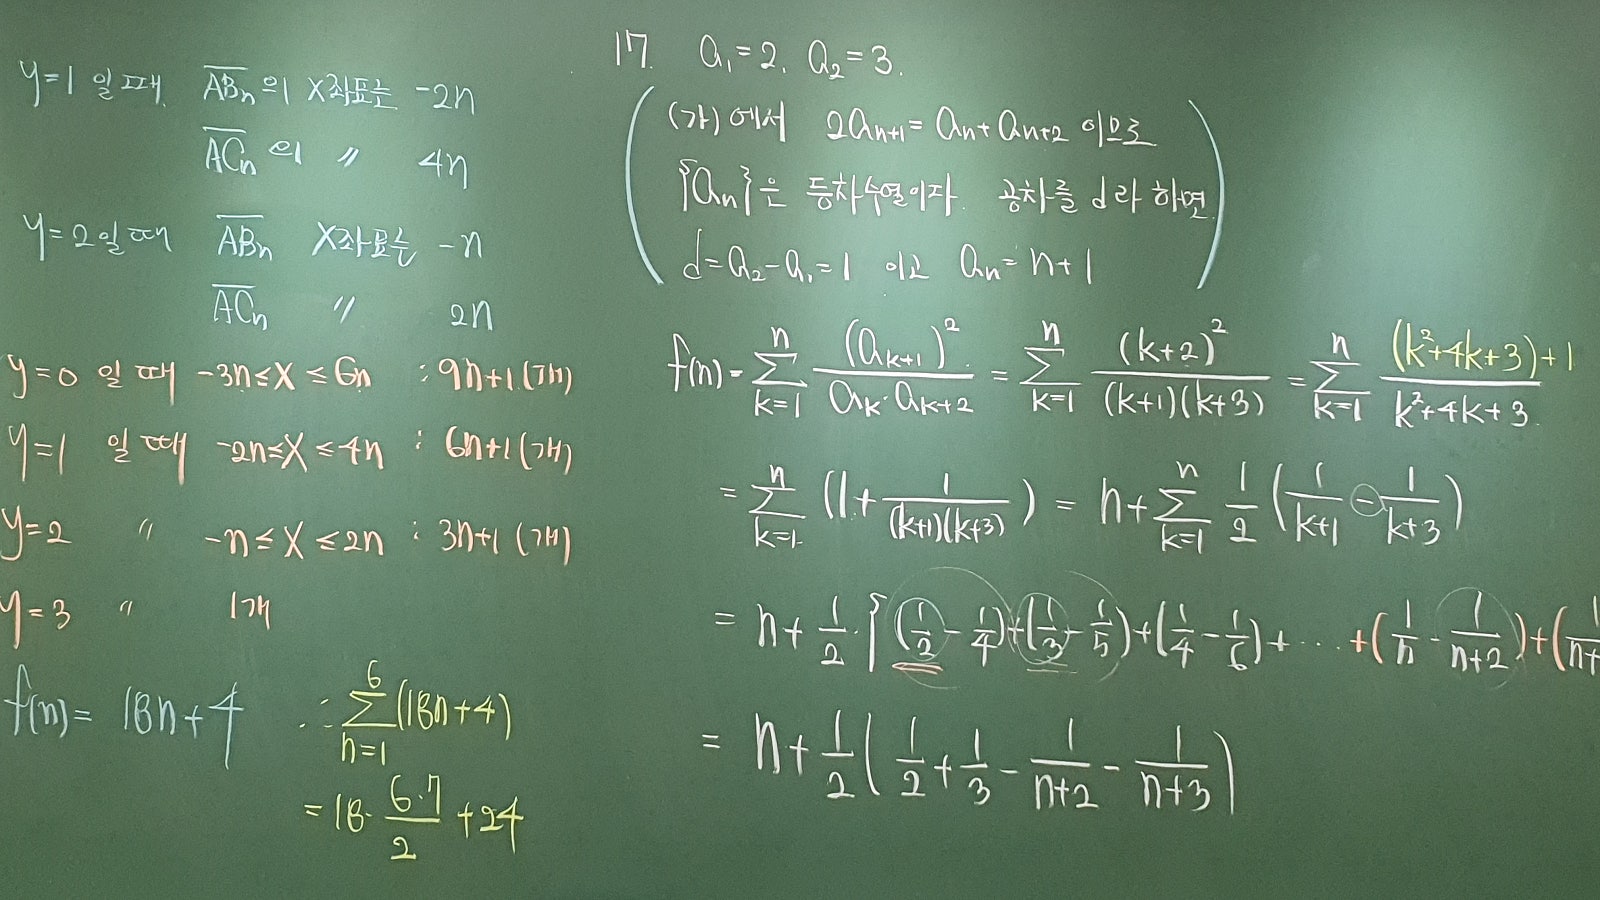 y=1 일때 AB̅n의 X좌표는 -2n
AC̅n의 〃 4n
y=2일때 AB̅n X좌표는 -n
AC̅n 〃 2n
y=0 일때 -3n≤X≤6n : 9n+1(개)
y=1 일때 -2n≤X≤4n : 6n+1(개)
y=2 〃 -n≤X≤2n : 3n+1(개)
y=3 〃 1개
f(n)= 18n+4 ∴ Σ_{n=1}^{6}(18n+4)
=18·(6·7)/2+24
17. a₁=2, a₂=3.
(가)에서 2a_{n+1}=a_n+a_{n+2} 이므로
{a_n}은 등차수열이다. 공차를 d라 하면
d=a₂-a₁=1 이고 a_n=n+1
f(n)=Σ_{k=1}^{n} (a_{k+1})²/(a_k·a_{k+2}) = Σ_{k=1}^{n} (k+2)²/((k+1)(k+3)) = Σ_{k=1}^{n} ((k²+4k+3)+1)/(k²+4k+3)
= Σ_{k=1}^{n} (1+1/((k+1)(k+3))) = n+Σ_{k=1}^{n} 1/2 (1/(k+1) - 1/(k+3))
= n+1/2·{(1/2-1/4)+(1/3-1/5)+(1/4-1/6)+⋯+(1/n-1/(n+2))+(1/(n+
= n+1/2(1/2+1/3-1/(n+2)-1/(n+3))